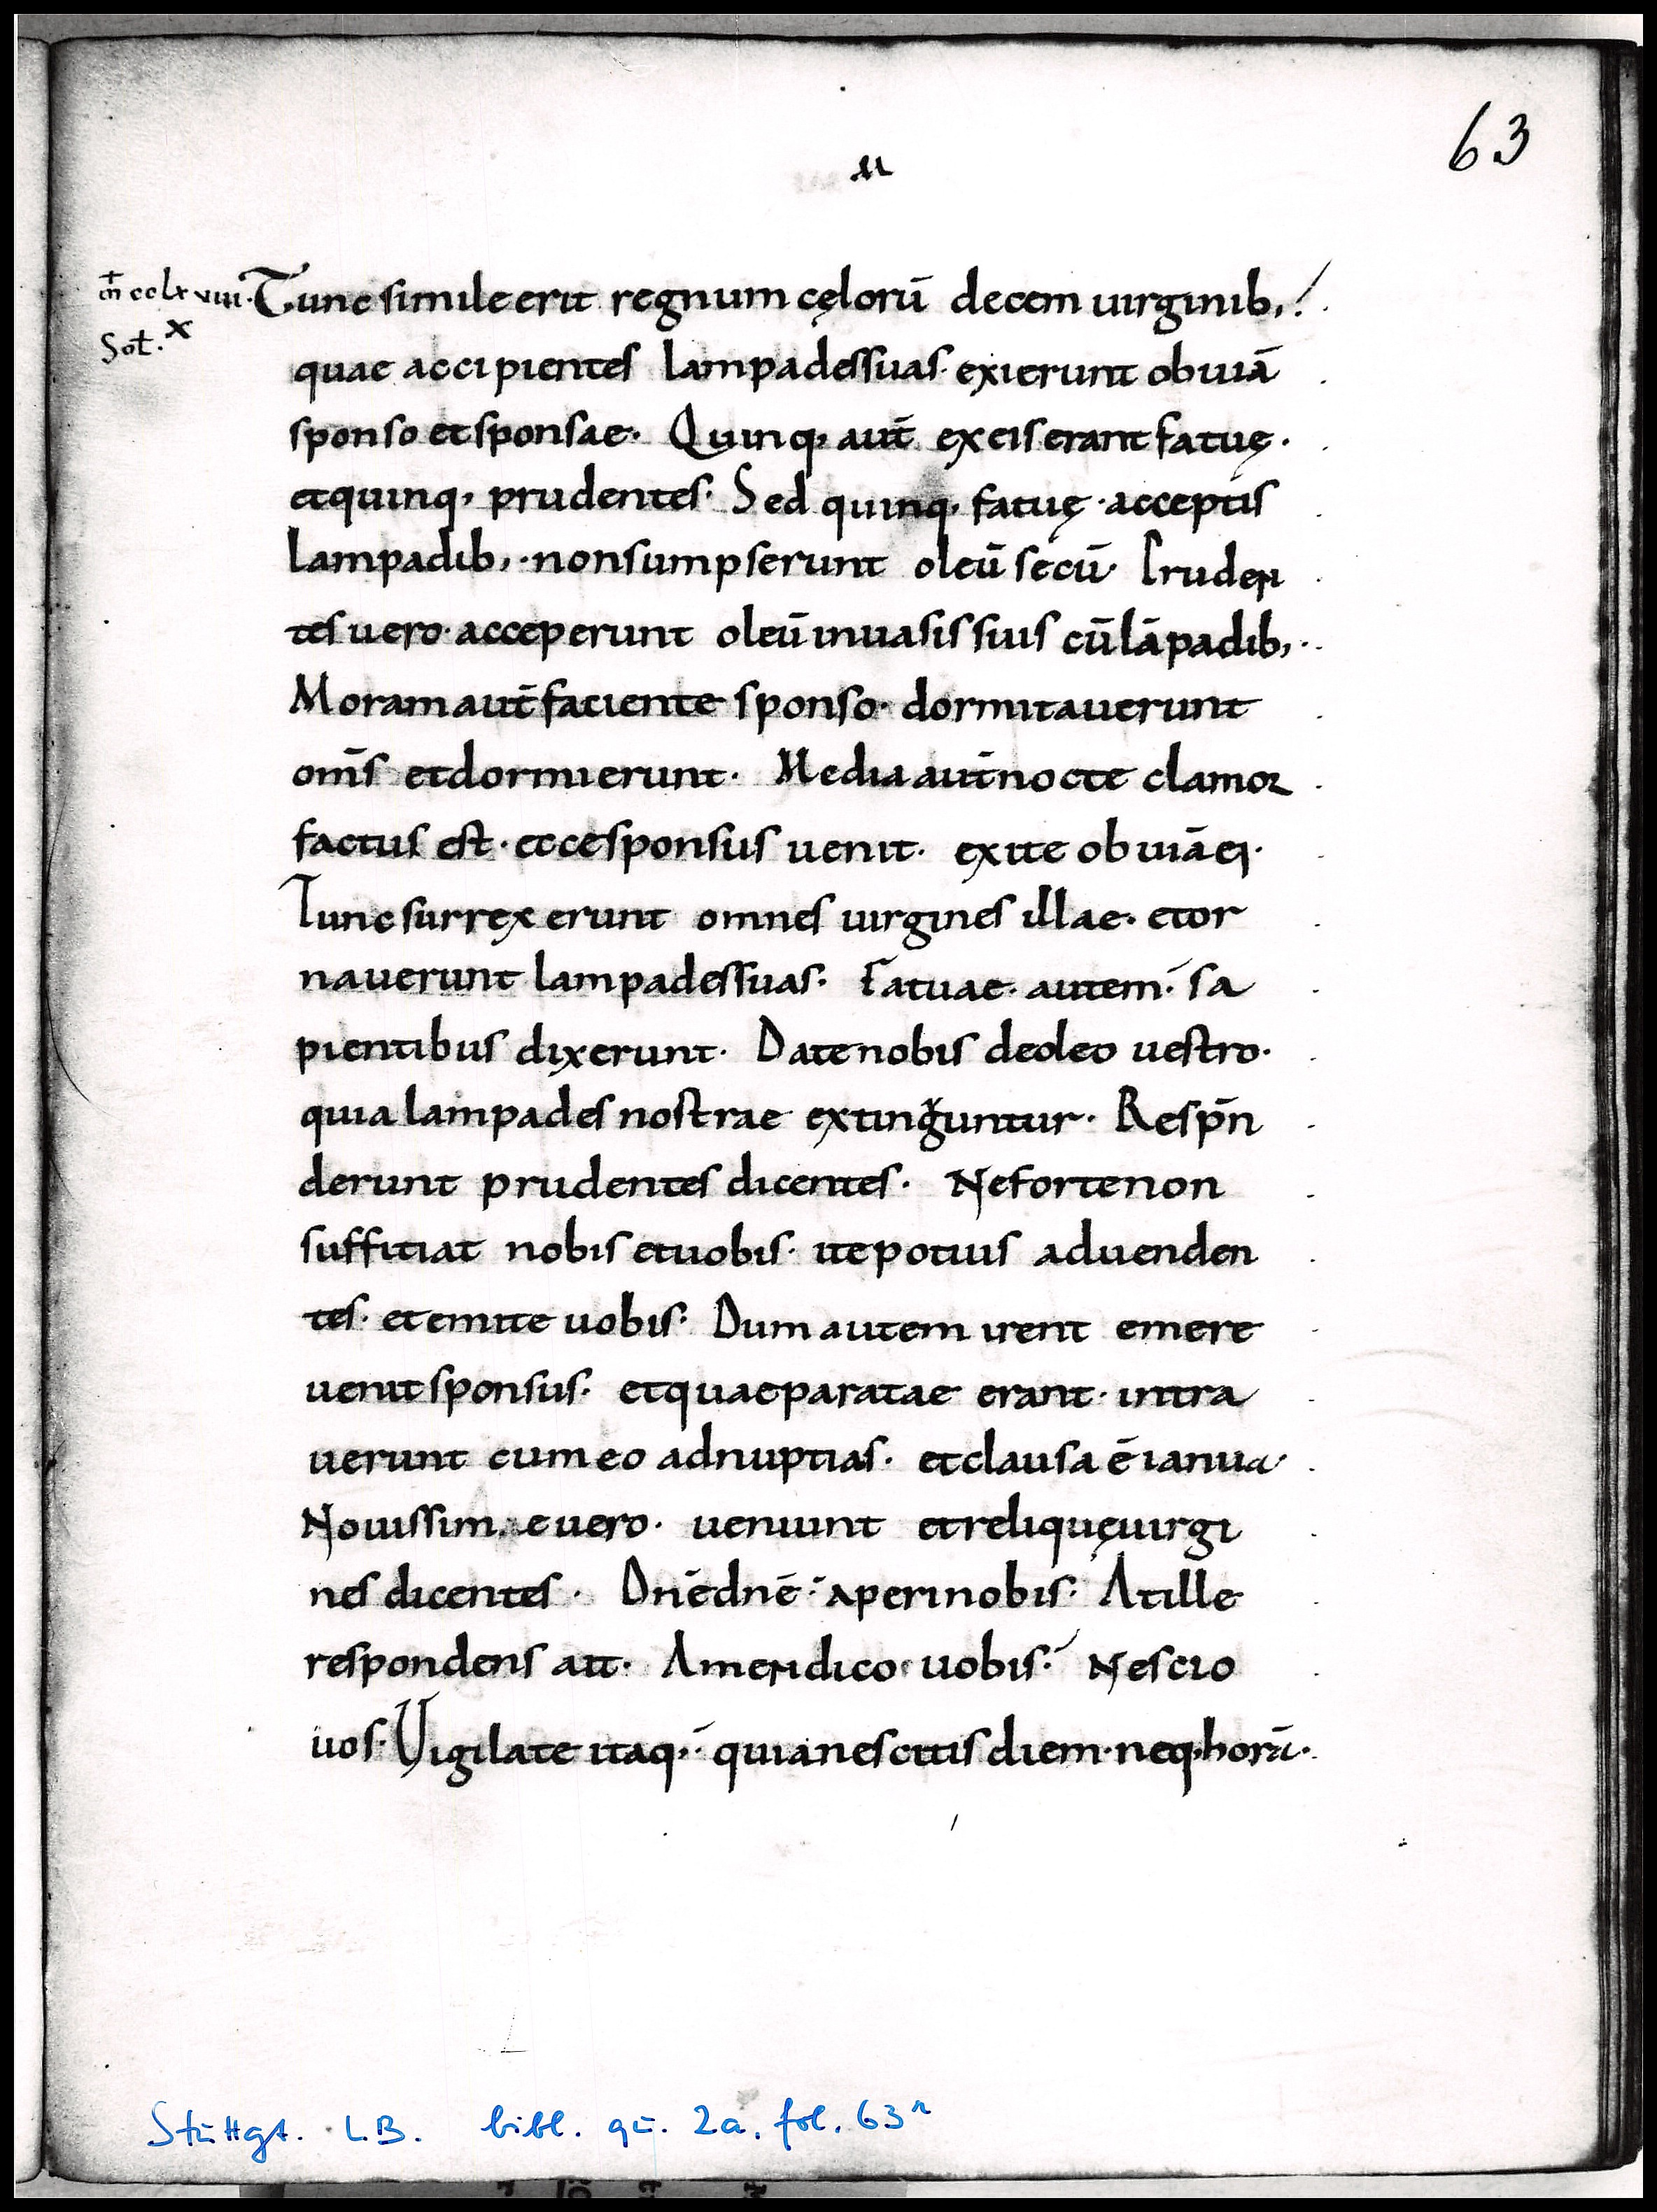 63
m̄ cclxviii· Tunc simile erit regnum cęlorū decem uirginib,·
Sol̄. x
quae accipientes lampades suas· exierunt obuiā
sponso et sponsae· Quinq, aut̄ ex eis erant fatuę·
et quinq, prudentes· Sed quinq, fatuę· acceptis
lampadib,· non sumpserunt oleū secū· Pruden
tes uero· acceperunt oleū in uasis suis cū lāpadib,·
Moram aut̄ faciente sponso· dormitauerunt
om̄s et dormierunt· Media aut̄ nocte clamor
factus est· ecce sponsus uenit· exite obuiā ei·
Tunc surrexerunt omnes uirgines illae· et or
nauerunt lampades suas· Fatuae· autem· sa
pientibus dixerunt· Date nobis de oleo uestro·
quia lampades nostrae extinguntur· Resp̄n
derunt prudentes dicentes· Ne forte non
suffitiat nobis et uobis· ite potius ad uenden
tes· et emite uobis· Dum autem irent emere
uenit sponsus· et quae paratae erant· intra
uerunt cum eo ad nuptias· et clausa ē ianua·
Nouissim e uero· ueniunt et reliquę uirgi
nes dicentes· Dn̄e dn̄e· aperi nobis· At ille
respondens ait· Amen dico uobis· Nescio
uos· Vigilate itaq,· quia nescitis diem· neq, horā·
Stuttgt. LB. bibl. qū. 2a. fol. 63r